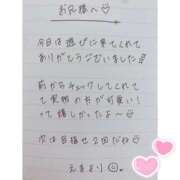 お兄様へ♡
今日は遊びに来てくれて
ありがとうございました
前からチェックしてくれて
て実物の方が可愛い!
って嬉しかったよ〜♡
次は目指せ2回だね
えまより